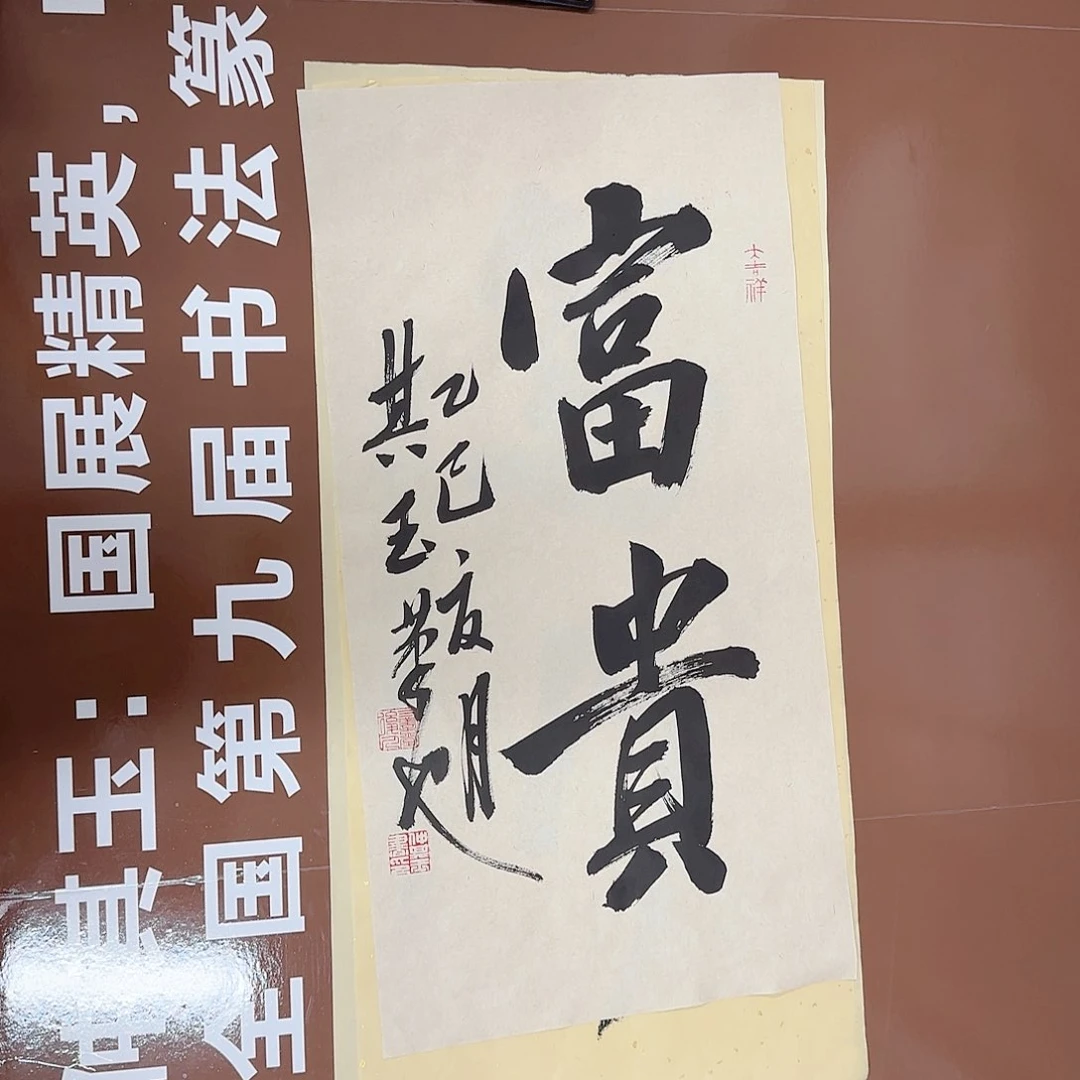 仲其玉：国展精英，
全国第九届书法篆
大吉祥
富貴
乙巳夏月
其玉